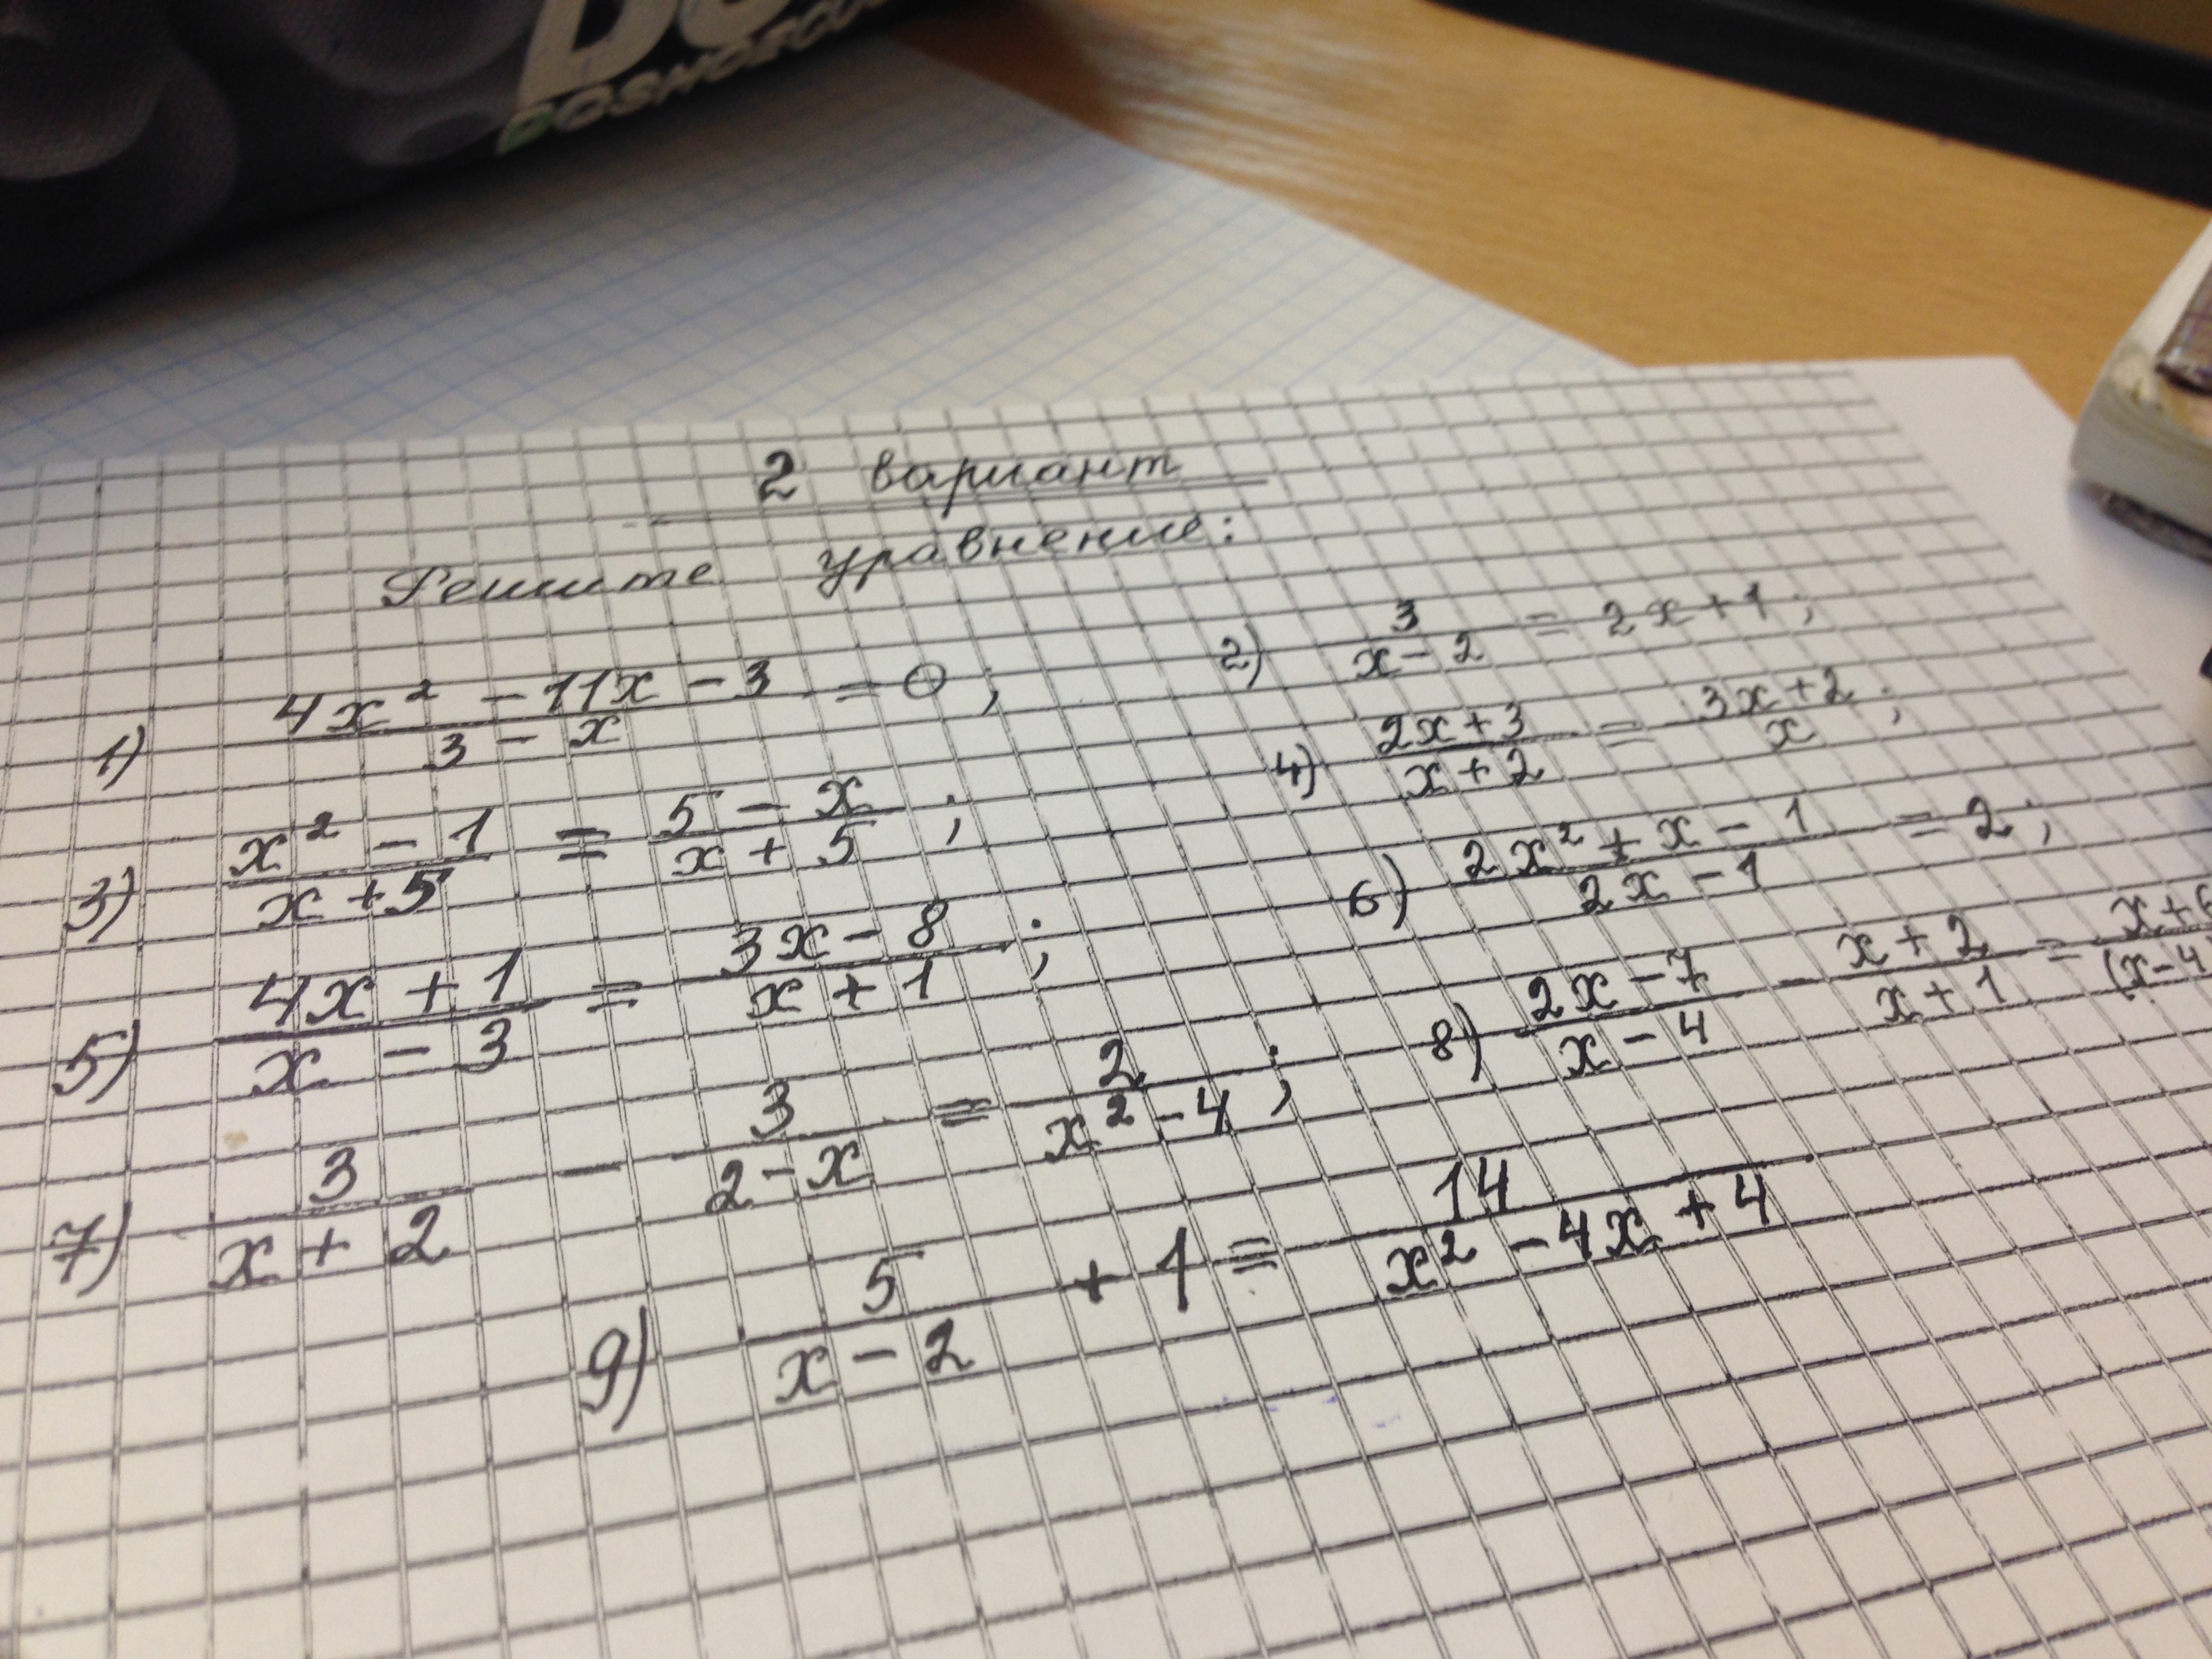 2 вариант
Решите уравнение:
1) (4x² - 11x - 3)/(3 - x) = 0;
2) 3/(x - 2) = 2x + 1;
3) (x² - 1)/(x + 5) = (5 - x)/(x + 5);
4) (2x + 3)/(x + 2) = (3x + 2)/x;
5) (4x + 1)/(x - 3) = (3x - 8)/(x + 1);
6) (2x² + x - 1)/(2x - 1) = 2;
7) 3/(x + 2) - 3/(2 - x) = 2/(x² - 4);
8) (2x - 7)/(x - 4) - (x + 2)/(x + 1) = (x + 6)/(x - 4)
9) 5/(x - 2) + 1 = 14/(x² - 4x + 4)